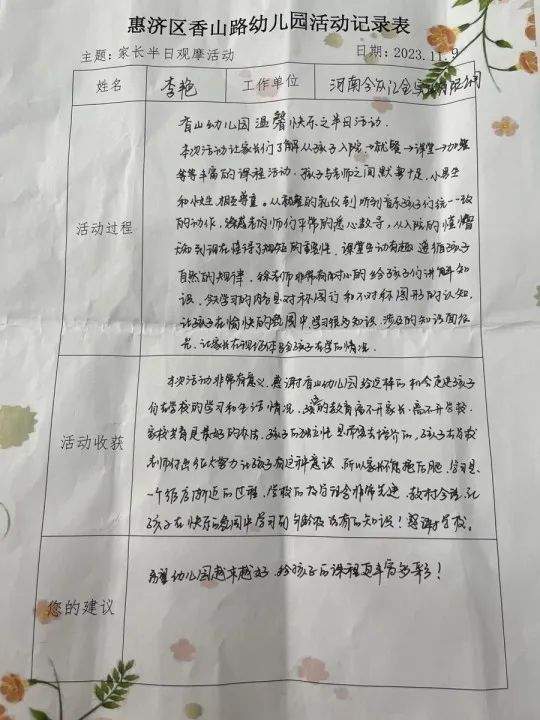 惠济区香山路幼儿园活动记录表
主题:家长半日观摩活动 日期:2023.11.9
姓名 李艳 工作单位 河南
活动过程
香山幼儿园温馨快乐之半日活动.
本次活动让家长们了解从孩子入院→就餐→课堂→加餐
等等丰富的课程活动.孩子与老师之间默契十足,小男生
和女生相互尊重.从就餐的礼仪到听到音乐孩子们统一一致
的动作,老师们平常的悉心教导,从入院的懵懂
无知到现在懂得了规矩的重要性.课堂生动有趣遵循孩子
自然的规律.徐老师非常有耐心的给孩子们讲解知
识.学习的内容是对称图行和不对称图形的认知.
让孩子在愉快的氛围中学习很多知识.涉及的知识面很
广.让家长在现场体会孩子在学的情况.
活动收获
本次活动非常有意义.感谢香山幼儿园给这样的机会见证孩子
们在学校的学习和生活情况.孩子的教育离不开家长.离不开学校.
家校共育是最好的办法.孩子的独立性是需要去培养的.孩子在学校
老师付出很大努力让孩子有这种意识.所以家长不能拖后腿.学习是
一个循序渐进的过程.学校的 非常先进.教材合适.让
孩子在快乐的氛围中学习到年龄段该有的知识!感谢学校.
您的建议
希望幼儿园越来越好.给孩子的课程更丰富多彩!